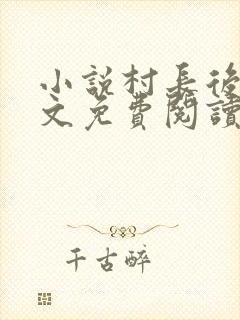 小說村長後
文免費閱讀
千古醉